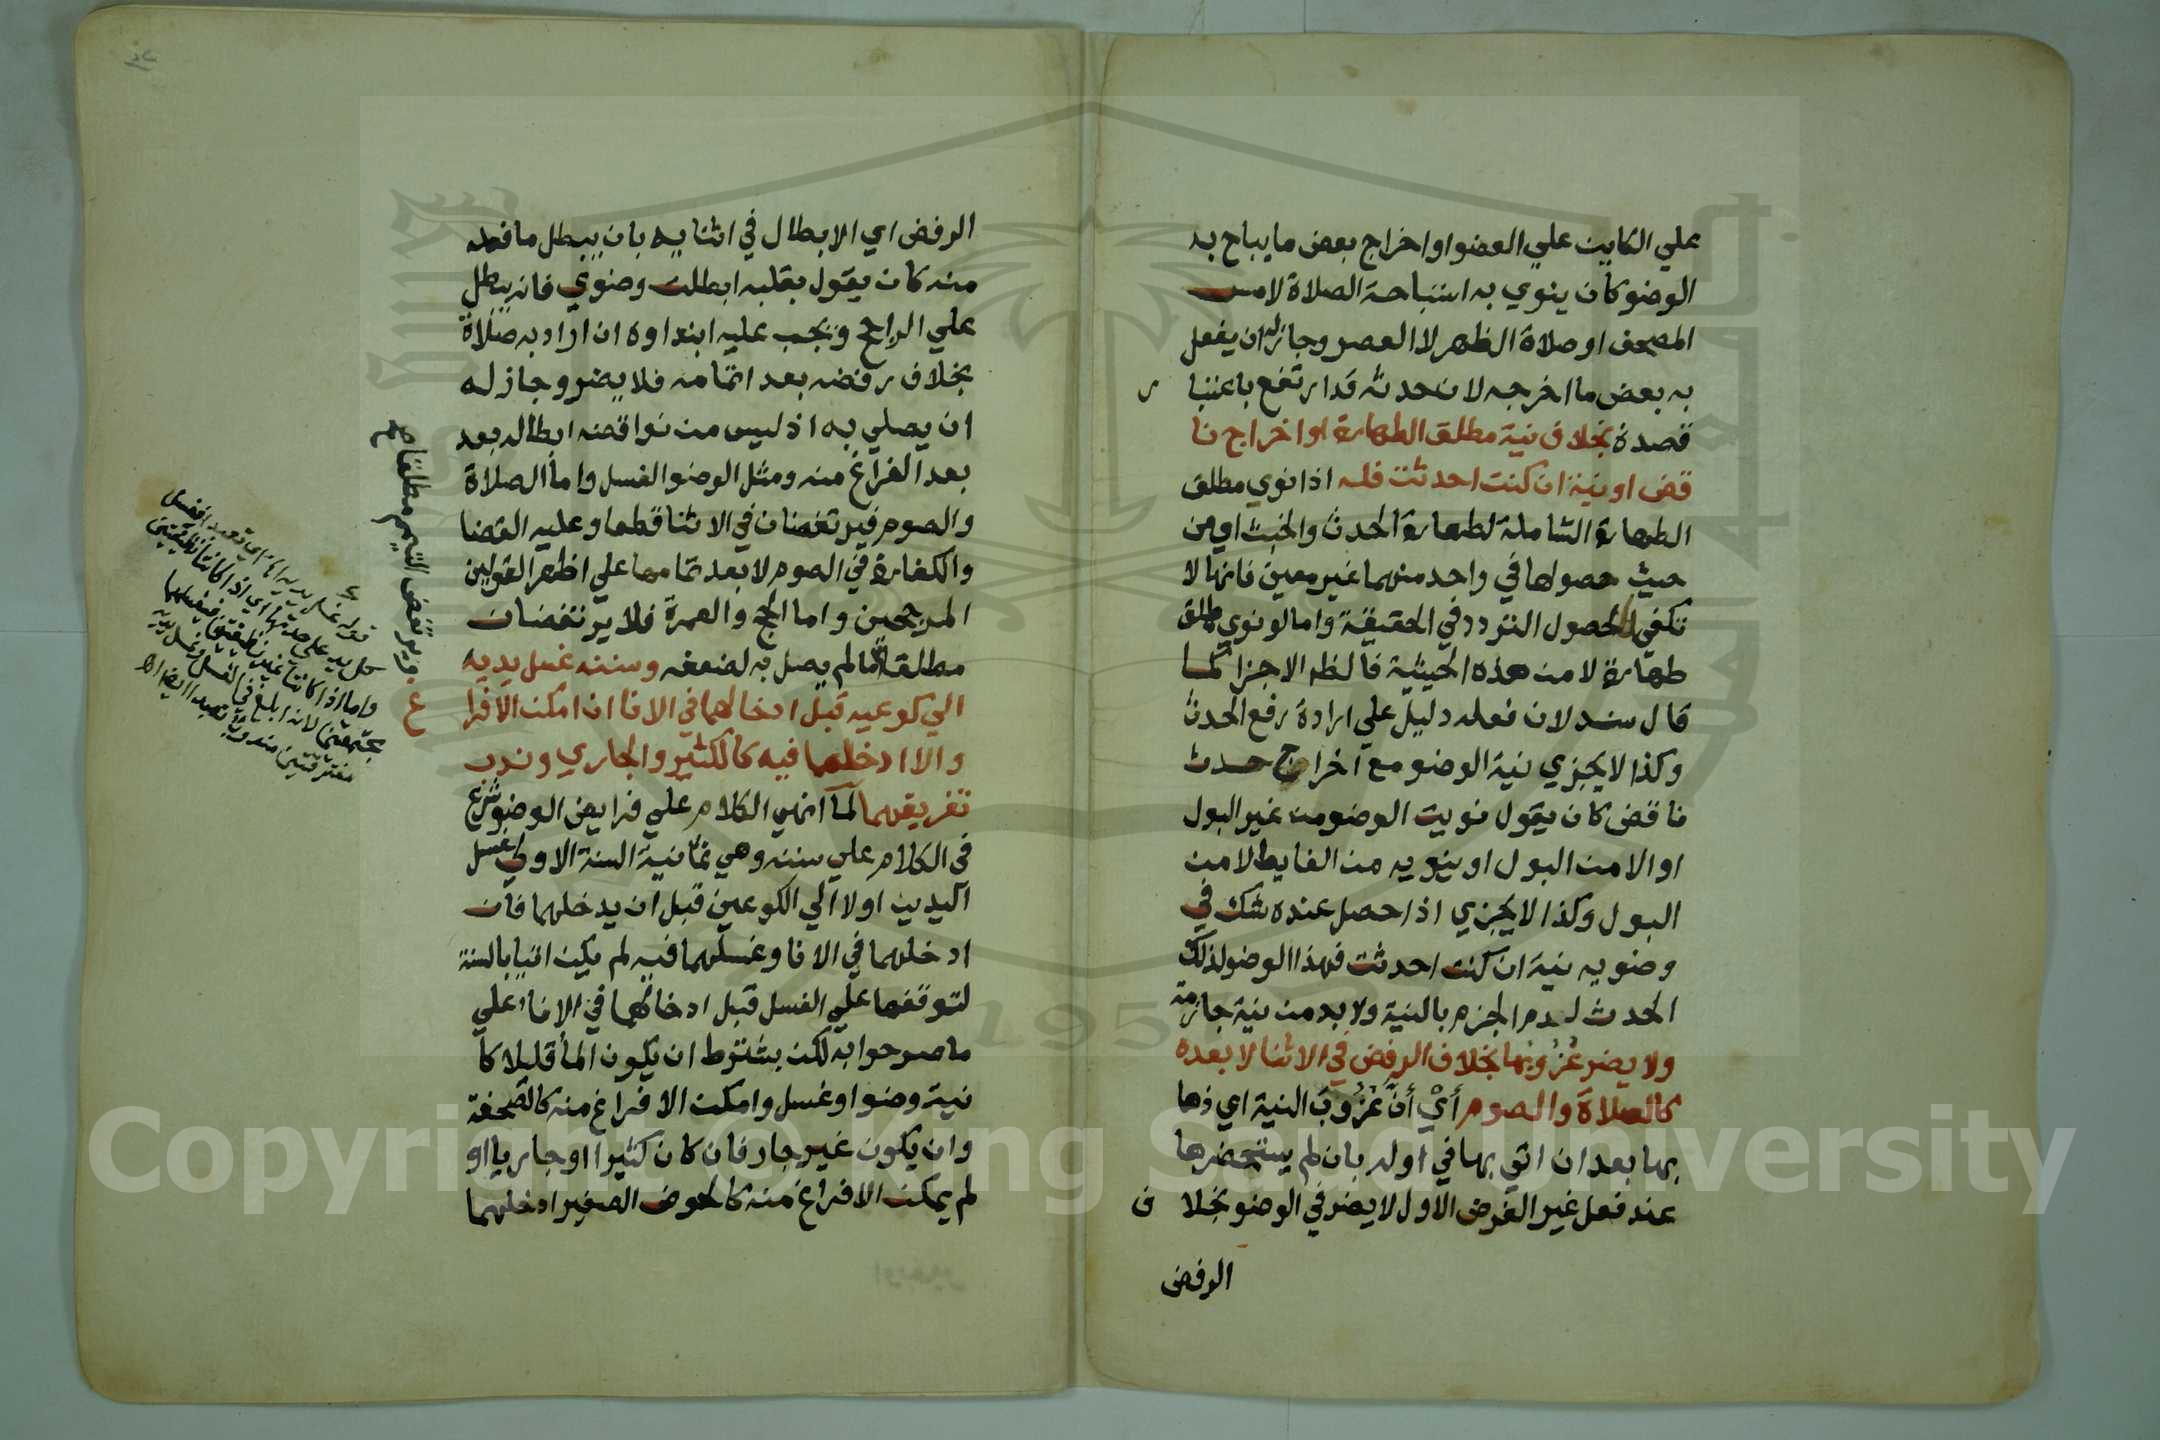 علي الكاين علي العضو او اخراج بعض ما يباح به
الوضو كان ينوي به استباحة الصلاة لا مس
المصحف او صلاة الظهر لا العصر وجاز له ان يفعل
به بعض ما اخرجه لان حدثه قد ارتفع باعتبا ر
قصده بخلاف نية مطلق الطهارة او اخراج نا
قض او نية ان كنت احدثت فله اذا نوي مطلق
الطهارة الشاملة لطهارة الحدث والخبث او من
حيث حصولها في واحد منهما غير معين فانها لا
تكفي لحصول التردد في الحقيقة واما لو نوي مطلق
طهارة لا من هذه الحيثية فالظاهر الاجزا كما
قال سند لان فعله دليل علي ارادة رفع الحدث
وكذا لا يجزي نية الوضو مع اخراج حدث
ناقض كان يقول نويت الوضو من غير البول
او الا من البول او ينويه من الغايط لا من
البول وكذا لا يجزي اذا حصل عنده شك في
وضويه نية ان كنت احدثت فهذا الوضو لذلك
الحدث لعدم الجزم بالنية ولا بد من نية جازمة
ولا يضر عُزُوبها بخلاف الرفض في الاثنا لا بعده
كالصلاة والصوم أيْ أنّ عُزُوبَ النية اي ذها
بها بعد ان اتي بها في اوله بان لم يستحضرها
عند فعل غير الفرض الاول لا يضر في الوضو بخلا ف
الرفض
الرفض اي الابطال في اثنايه بان يبطل ما فعله
منه كان يقول بقلبه ابطلت وضوي فانه يبطل
علي الراجح ويجب عليه ابتداوه ان اراد به صلاة
بخلاف رفضه بعد اتمامه فلا يضر وجاز له
ان يصلي به اذ ليس من نواقضه ابطاله بعد
بعد الفراغ منه ومثل الوضو الغسل واما الصلاة
والصوم فيرتفضان في الاثنا قطعا وعليه القضا
والكفارة في الصوم لا بعد تمامهما علي اظهر القولين
المرجحين واما الحج والعمرة فلا يرتفضان
مطلقا ما لم يصل به لضعفه وسننه غسل يديه
الي كوعيه قبل ادخالهما في الانا ان امكن الافرا غ
والا ادخلهما فيه كالكثير والجاري وندب
تفريقهما لما انهي الكلام علي فرايض الوضو شرع
في الكلام علي سننه وهي ثمانية السنة الاولي غسل
اليدين اولا الي الكوعين قبل ان يدخلهما فان
ادخلهما في الانا وغسلهما فيه لم يكن اتيا بالسنة
لتوقفها علي الغسل قبل ادخالهما في الاناء علي
ما صرحوا به لكن بشترط ان يكون الما قليلا كا
نية وضو او غسل وامكن الافراغ منه كالصحفة
وان يكون غير جار فان كان كثيرا او جاريا او
لم يمكن الافراغ منه كالحوض الصغير ادخلهما
ويرتفض التيمم مطلقا
قوله غسل يديه
كل يد علي حدتها اي اذا كانتا نظيفتين
واما اذا كانتا غير نظيفتين فيغسلهما
مجتمعتين لانه ابلغ في الغسل وغسل يديه
مفترقتين مندوب